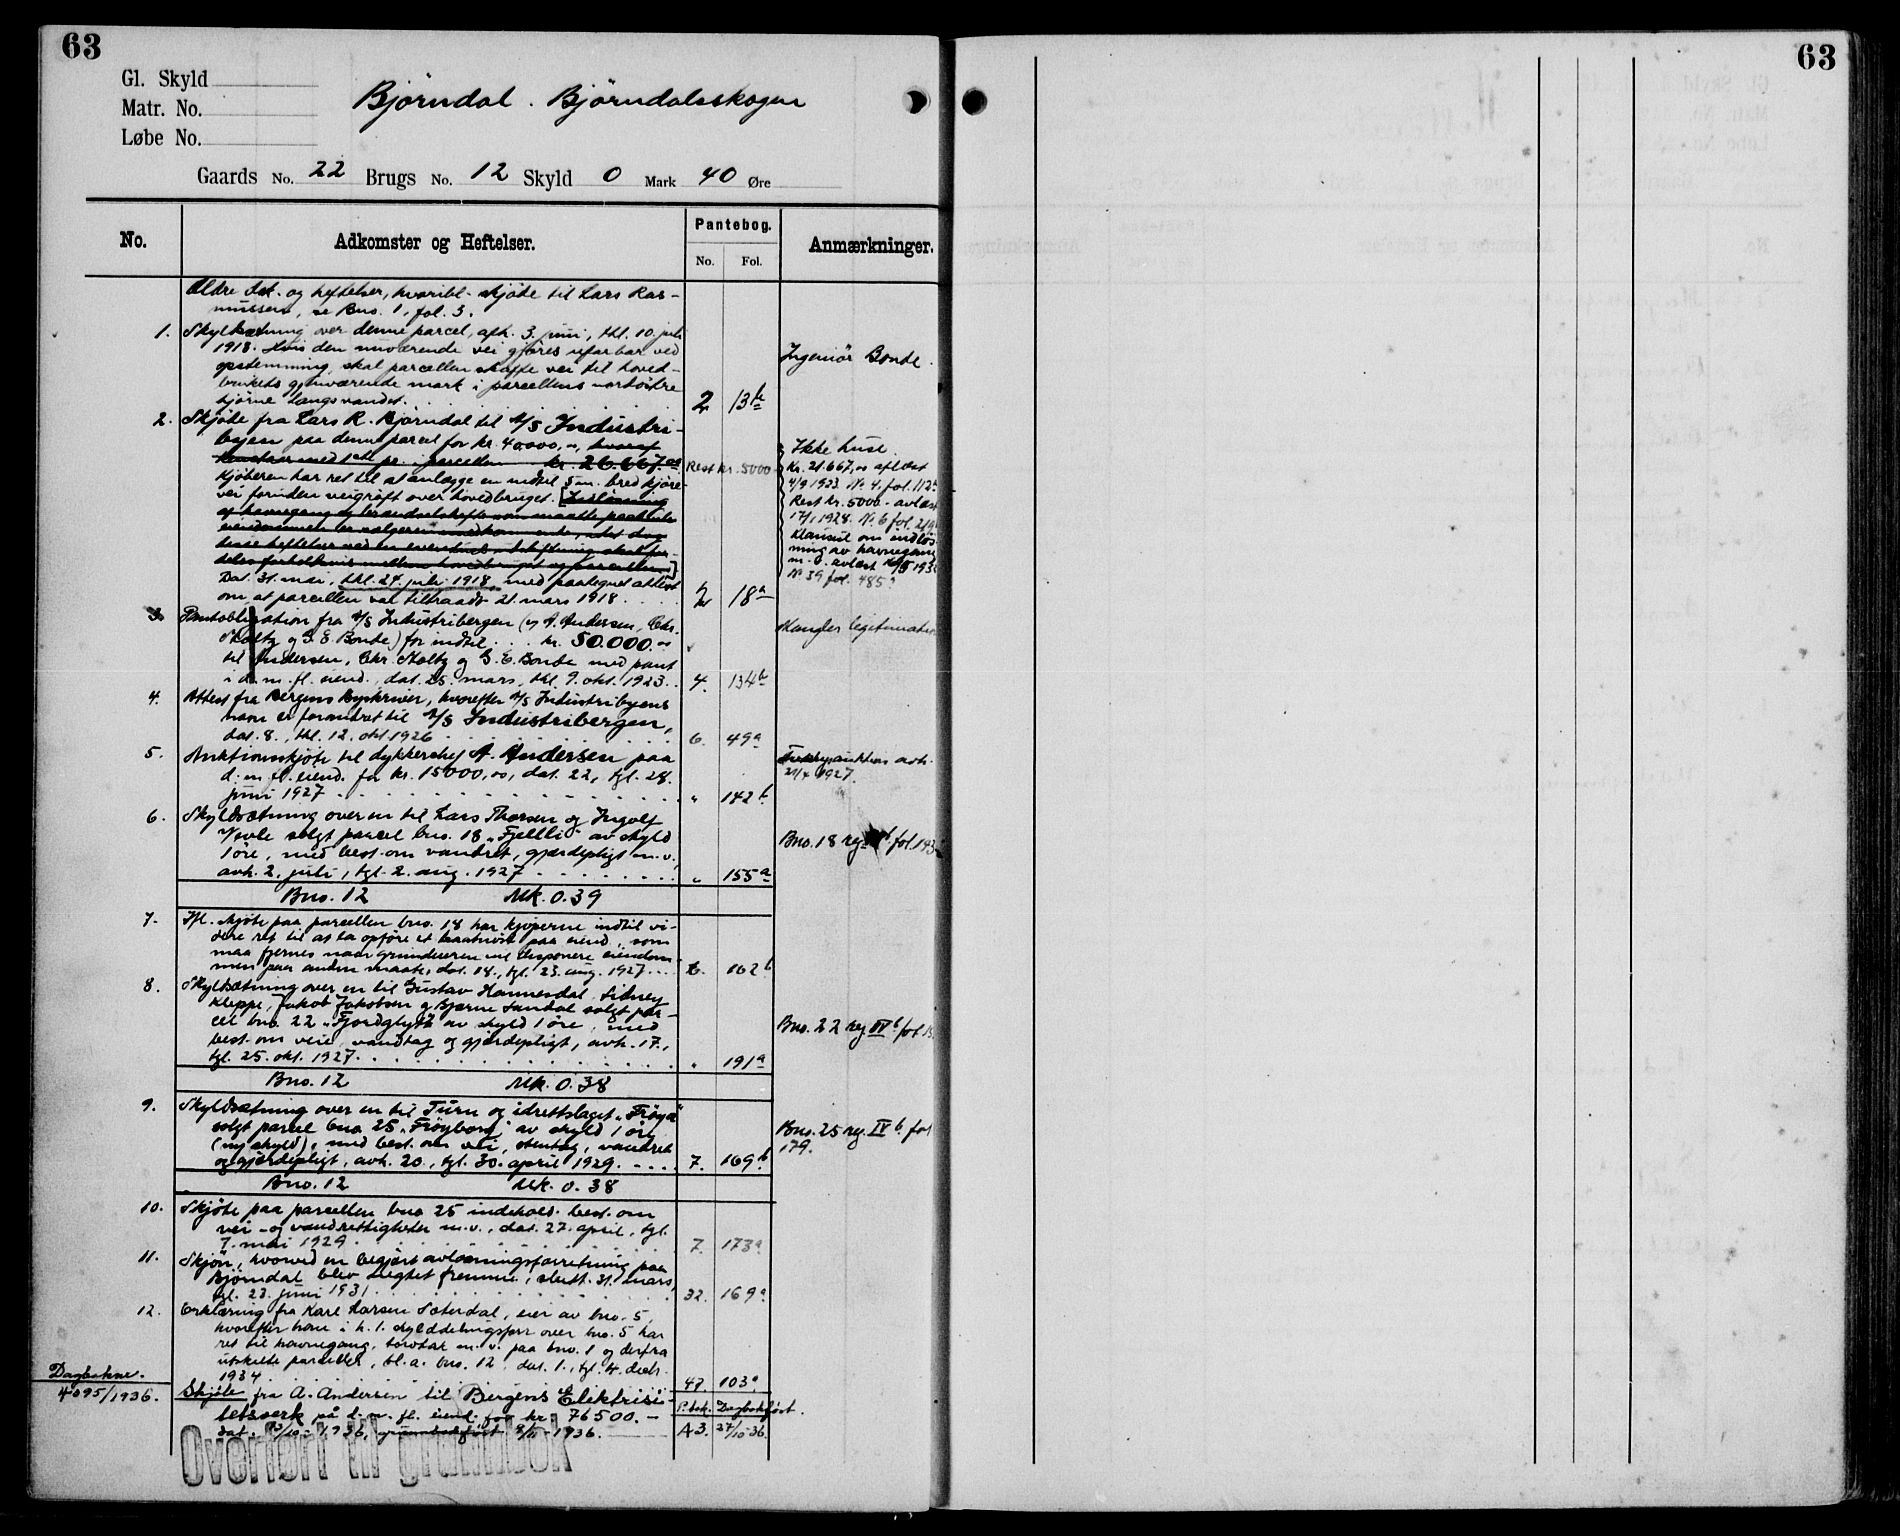 63
63
Gl. Skyld
Matr. No.
Løbe No.
Bjørndal. Bjørndalsskogen
Gaards No. 22 Brugs No. 12 Skyld 0 Mark 40 Øre
No.
Adkomster og Heftelser.
Pantebog.
No. Fol.
Anmærkninger.
Ældre dok. og heftelser, hvoribl. skjøte til Lars Ras-
mussen, se Bno. 1, fol. 3.
1. Skyldsætning over denne parcel, afh. 3. juni, thl. 10. juli
1918. Hvis den nuværende vei gjøres ufarbar ved
opdemning, skal parcellen skaffe vei til hoved-
brukets gjenværende mark i parcellens nordöstre
hjörne langs vandet. 2 13b
Ingeniør Bonde.
2. Skjøte fra Lars R. Bjørndal til A/S Industri-
byen paa denne parcel for kr. 40000,00, hvoraf
henstaar med 1ste pr. i parcellen kr. 26.667.00
Rest kr. 5000
Kjøberen har ret til at anlægge en indtil 5 m. bred kjøre-
vei foruden veigrøft over hovedbruget. [Indløsning
Dat. 31. mai, thl. 24. juli 1918, med paategnet attest
om at parcellen var tiltraadt 21. mars 1918. 2 18a
Ikke huse.
Kr. 21.667,00 aflæst
4/9 1923 No 4. fol. 112
Rest kr. 5000.- avlæst
17/1 1928. No 6 fol. 219
Klausul om indløs-
ning av havnegang
m.v. avlæst
No 39 fol. 485
3. Pantobligation fra A/S Industribergen (v/ A. Andersen, Chr.
Holtz og G. E. Bonde) for indtil kr. 50.000.00
til Andersen, Chr. Holtz og G. E. Bonde med pant
i d. m. fl. eiend., dat. 25. mars, thl. 9. okt. 1923. 4. 134b
Mangler legitimation
4. Attest fra Bergens Byskriver, hvorefter A/S Industribyens
navn er forandret til A/S Industribergen,
dat. 8., thl. 12. okt. 1926 6. 49a
5. Auktionsskjøte til dykkerchef A. Andersen paa
d. m. fl. eiend. for kr. 15000,00, dat. 22., tgl. 28.
juni 1927 " 142b
auktion avh.
21/4 1927.
6. Skyldsætning over en til Lars Thorsen og Ingolf
solgt parcel bno. 18 "Fjellli" av skyld
1 øre, med best. om vandret, gjærdepligt m.v.,
avh. 2. juli, tgl. 2. aug. 1927 " 155a
Bno. 18 reg. fol. 143
Bno. 12 Mk. 0.39
7. Ifl. skjøte paa parcellen bno. 18 har kjøperne indtil vi-
dere ret til at la opføre et baatnøst paa eiend., som
maa fjernes naar grundeieren vil disponere eiendom-
men paa anden maate, dat. 14., tgl. 23. aug. 1927 6. 162b
8. Skyldsætning over en til Gustav Hannesdal, Sidney
Kleppe, Jakob Jakobsen og Bjarne Sandal solgt par-
cel bno. 22 "Fjordglytt" av skyld 1 øre, med
best. om veie, vandtag og gjærdepligt, avh. 17.,
tgl. 25. okt. 1927 " 191a
Bno. 22 reg. IVb fol.
Bno. 12 Mk. 0.38
9. Skyldsætning over en til Turn og idrettslaget "Frøya"
solgt parcel bno. 25 "Frøyborg" av skyld 1 øre
(ny skyld), med best. om vei, stentag, vandret
og gjærdepligt, avh. 20., tgl. 30. april 1929. 7. 169b
Bno. 25 reg. IVb. fol
179.
Bno. 12 Mk. 0.38
10. Skjøte paa parcellen bno 25 indehold. best. om
vei- og vandrettigheter m.v., dat. 27. april, tgl.
7. mai 1929 7. 173a
11. Skjøn, hvorved en begjært avløsningsforretning paa
Bjørndal blev negtet fremme, slutt. 31. mars,
tgl. 23. juni 1931 32. 169a
12. Erklæring fra Karl Larsen Sæterdal, eier av bno. 5,
hvorefter han i h. t. skylddelingsforr over bno. 5 har
ret til havnegang, torvtak m.v. paa bno. 1 og derfra
utskilte parceller, bl. a. bno. 12, dat. 1., tgl. 4. decbr.
1934 47. 103a
Dagboknr.
4095/1936.
Skjøte fra A. Andersen til Bergens Elektrisi-
tetsverk på d. m. fl. eiend. for kr. 76500.-
1936, grunnbokført 1936.
P.bok. Dagbokført.
A3. 27/10-36.
Overført til grunnbok